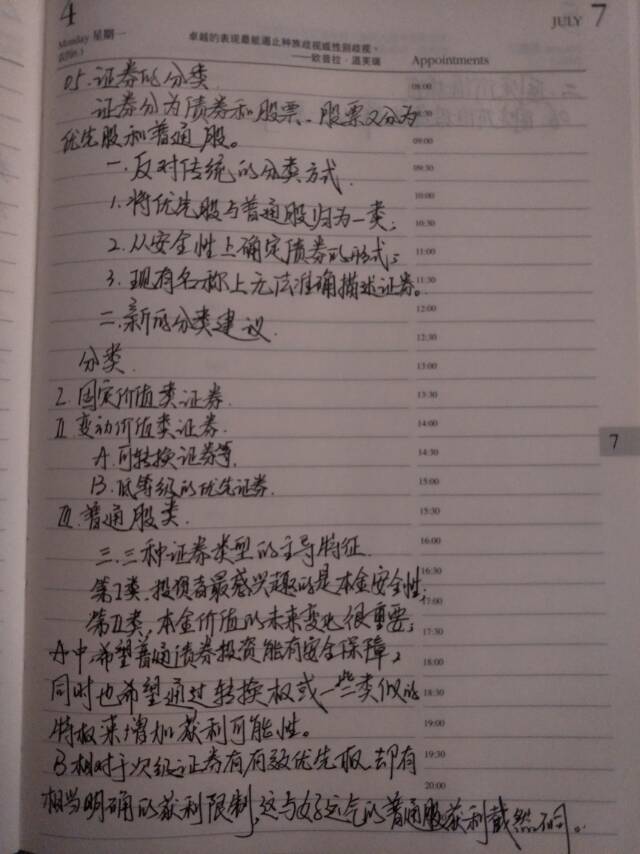 4
JULY 7
Monday 星期一
卓越的表现最能遏止种族歧视或性别歧视。
——欧普拉·温芙瑞
Appointments
05.证券的分类
08:00
证券分为债券和股票、股票又分为
08:30
优先股和普通股。
09:00
一.反对传统的分类方式.
09:30
1.将优先股与普通股归为一类;
10:00
10:30
2.从安全性上确定债券的形式;
11:00
3.现有名称上无法准确描述证券。
11:30
12:00
二.新的分类建议.
12:30
分类.
13:00
I.固定价值类证券.
13:30
II.变动价值类证券.
14:00
A.可转换证券等.
14:30
7
B.低等级的优先证券.
15:00
III.普通股类.
15:30
三.三种证券类型的主导特征.
16:00
第I类、投资者最感兴趣的是本金安全性;
16:30
17:00
第II类,本金价值的未来变化很重要;
17:30
A中,希望普通债券投资能有安全保障,
18:00
同时也希望通过转换权或一些类似的
18:30
特权来增加获利可能性。
19:00
B相对于次级证券有有效优先权,却有
19:30
20:00
相当明确的获利限制,这与好运气的普通股获利截然不同。